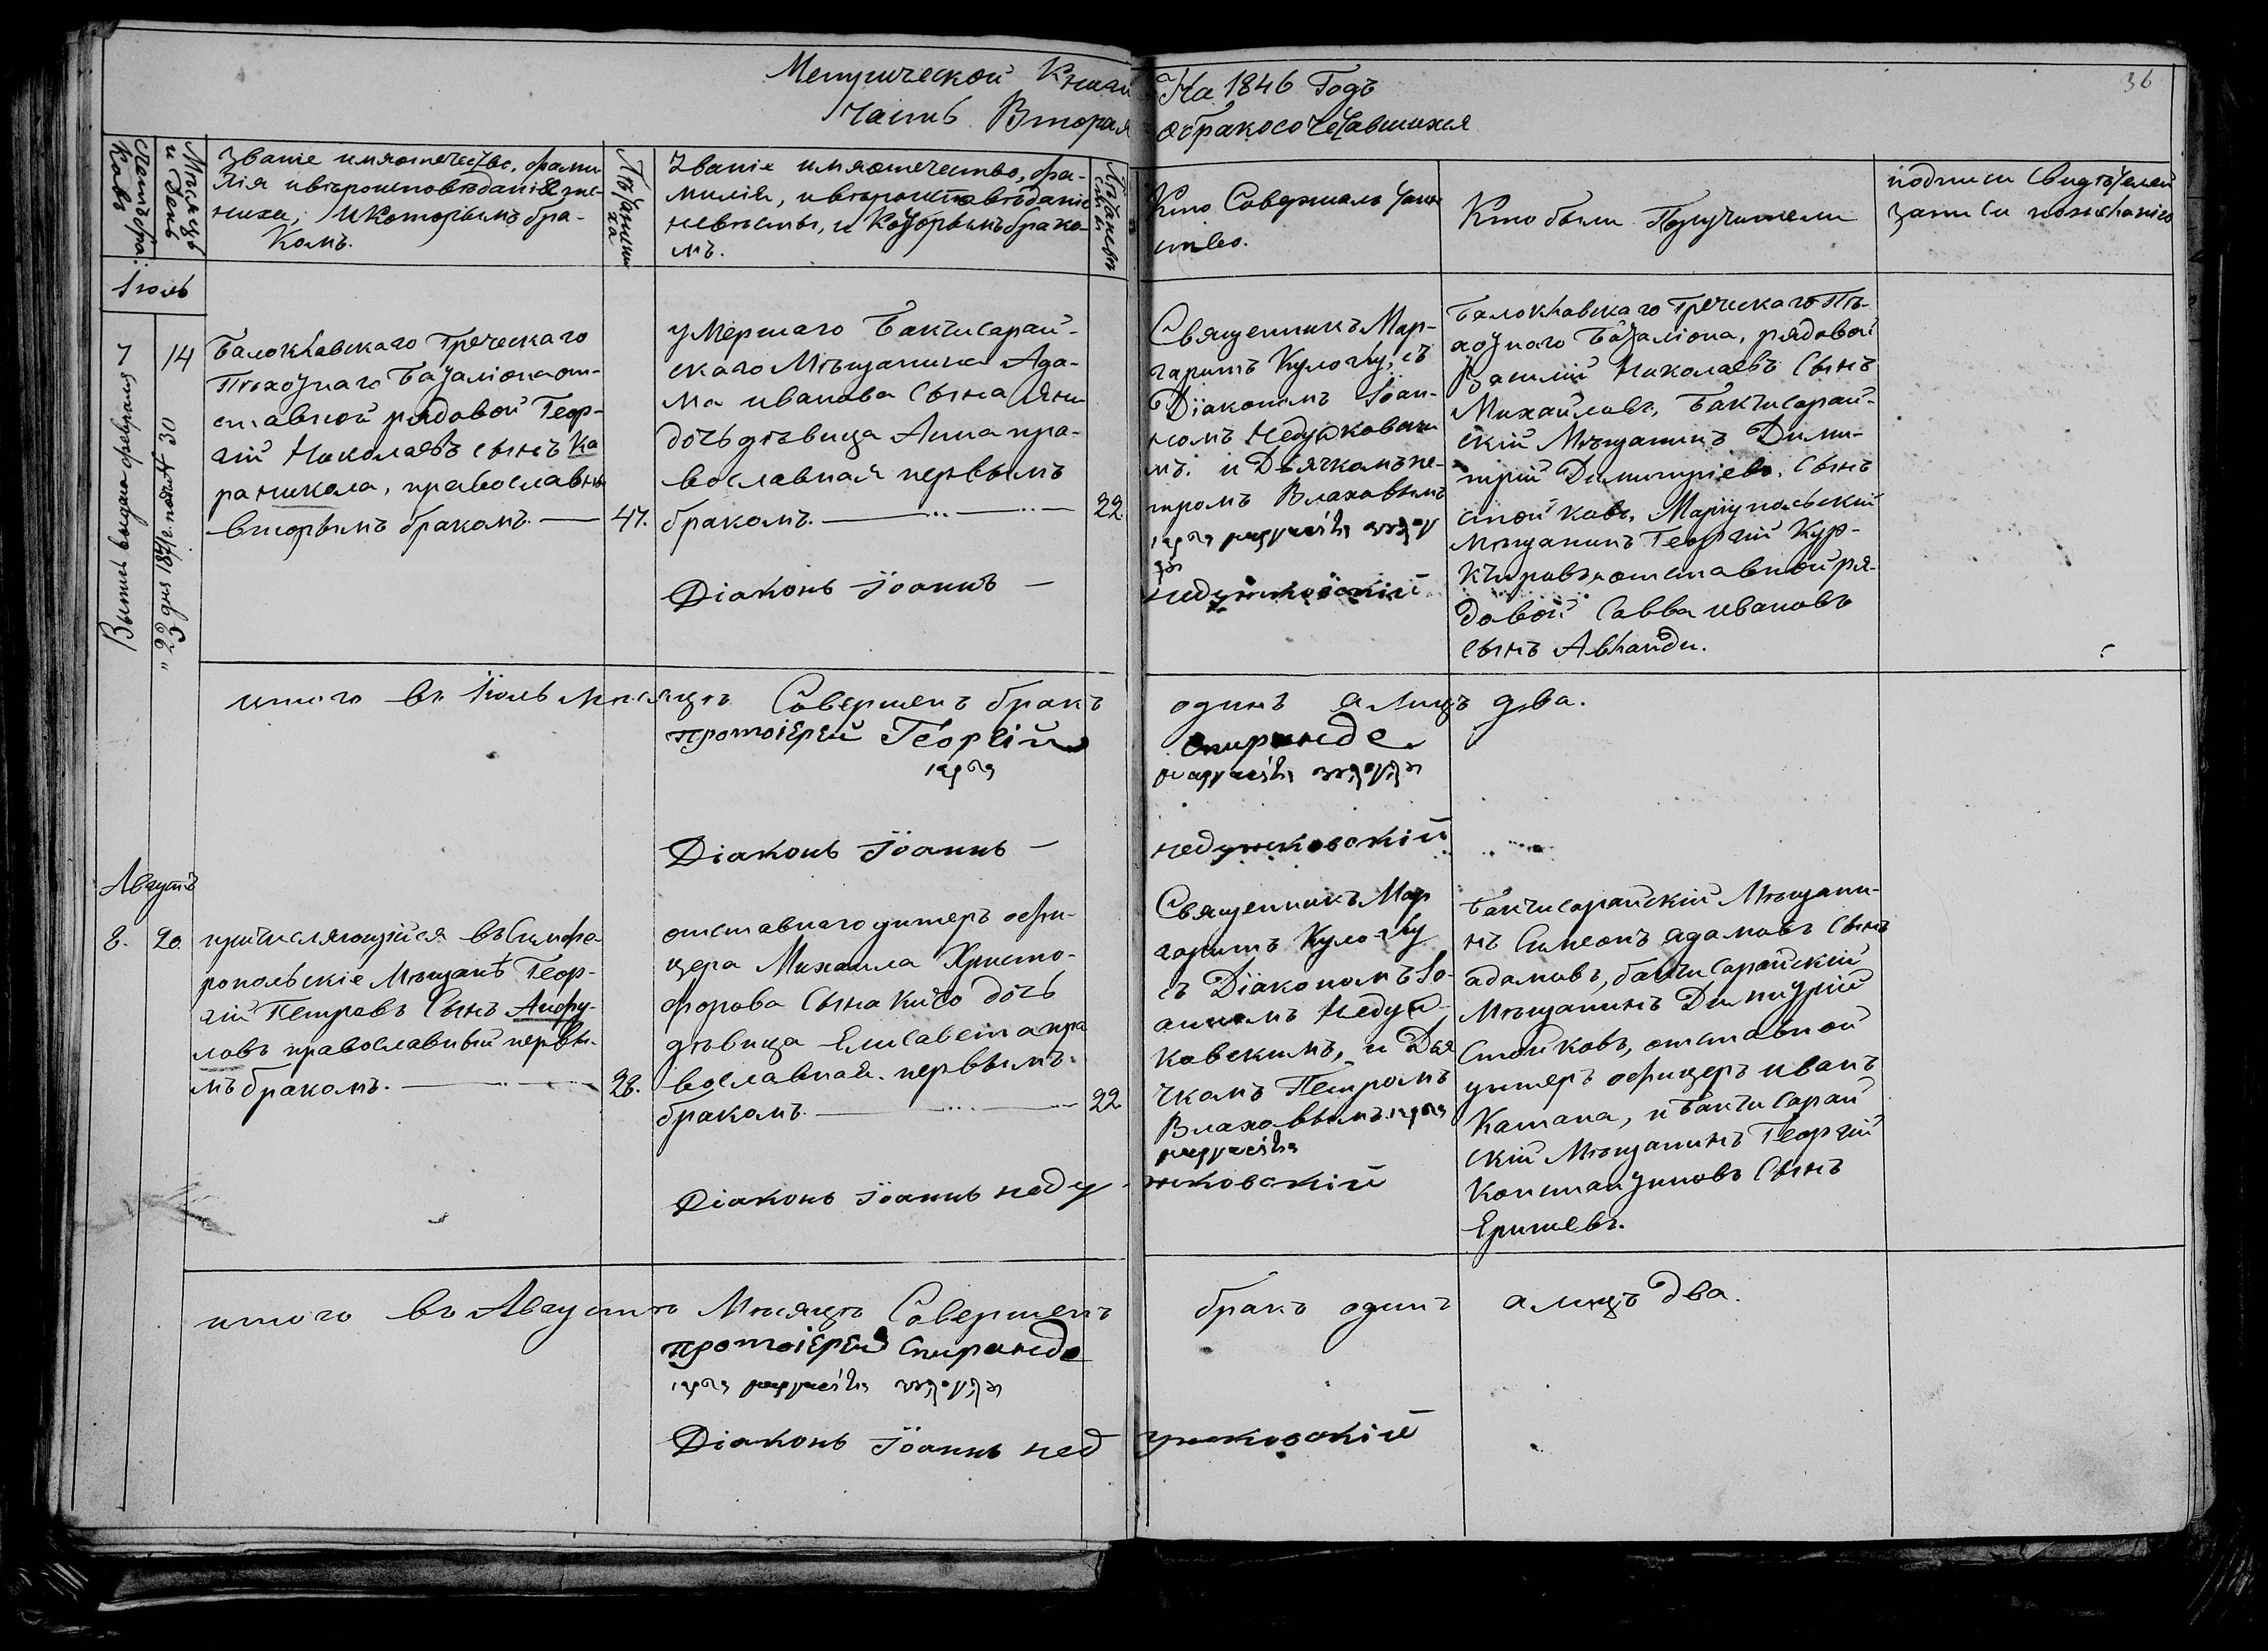 Метрической Книги На 1846 Годъ
Часть Вторая о бракосочетавшихся
36
Счетъ браковъ
Мѣсяцъ и День
Званіе имя отечество, фами-
лія и вѣроисповѣданіе же-
ниха, и которымъ бра-
комъ.
Лѣта жениха
Званіе имя отечество, фа-
милія, и вѣроисповѣданіе
невѣсты, и которымъ брако-
мъ.
Лѣта невѣсты
Кто Совершалъ Таин-
ство.
Кто были Поручители
подписи Свидѣтелей
записи по желанію
Іюль
7
14
Балоклавскаго Греческаго
Пѣхотнаго Баталіона от-
ставной рядовой Геор-
гій Николаевъ сынъ Ка
ра никола, православны
вторымъ бракомъ.
47.
умершаго Бакчисарай-
скаго Мѣщанина Ада-
ма иванова Сына Яни
дочь дѣвица Анна пра-
вославная первымъ
бракомъ.
22
Діаконъ Іоаннъ
Священникъ Мар-
гаритъ Кулоглу, съ
Діакономъ Іоан-
номъ Недужковски
мъ. и Дьячкомъ пе-
тромъ Влаховымъ
недужковскій
Балоклавскаго Греческаго Пѣ-
хотнаго Баталіона, рядовой
Василій Николаевъ Сынъ
Михайловъ, Бакчисарай-
скій Мѣщанинъ Дими-
трій Димитріевъ. Сынъ
стойковъ, Маріупольскій
мѣщанинъ Георгій Кур-
отставной ря-
довой Савва ивановъ
сынъ Авланди.
Выпись выдана февраля
итого въ Іюль мѣсяцѣ Совершенъ бракъ одинъ а лицъ два.
протоіерей Георгій Спиранде
Діаконъ Іоаннъ недужковскій
Августъ
8.
20
причисляющійся въ Симфе
ропольскіе Мѣщанѣ Геор-
гій Петровъ Сынъ Анфу-
ловъ православный первы-
мъ бракомъ.
28.
отставнаго унтеръ офи-
цера Михаила Христо-
форова Сына Кичо дочь
дѣвица Елисавета пра
вославная. первымъ
бракомъ.
22
Діаконъ Іоаннъ недужковскій
Священникъ Мар
гаритъ Кулоглу
съ Діакономъ Іо-
анномъ Недуж-
ковскимъ, и Дья
чкомъ Петромъ
Влаховымъ.
Бакчисарайскій Мѣщани-
нъ Симеонъ адамовъ Сынъ
адамовъ, бакчисарайскій
Мѣщанинъ Димитрій
Стойковъ, отставной
унтеръ офицеръ иванъ
Катана, и Бакчисарай
скій Мѣщанинъ Георгій
Константиновъ Сынъ
итого въ Августѣ Мѣсяцѣ Совершенъ бракъ одинъ а лицъ два.
протоіерей Спиранде
Діаконъ Іоаннъ недужковскій